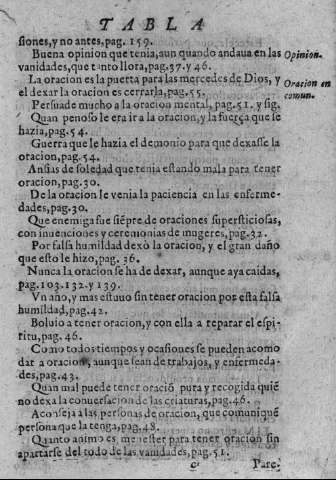 TABLA
siones, y no antes, pag. 159.
Buena opinion que tenia, aun quando andaua en las
Opinion.
vanidades, que tanto llora, pag. 37. y 46.
La oracion es la puerta para las mercedes de Dios, y
Oracion en
el dexar la oracion es cerrarla, pag. 55.
comun.
Persuade mucho a la oracion mental, pag. 51. y sig.
Quan penoso le era ir a la oracion, y la fuerça que se
hazia, pag. 54.
Guerra que le hazia el demonio para que dexasse la
oracion, pag. 54.
Ansias de soledad que tenia estando mala para tener
oracion, pag. 30.
De la oracion le venia la paciencia en las enferme-
dades, pag. 30.
Que enemiga fue siẽpre de oraciones supersticiosas,
con inuenciones y ceremonias de mugeres, pag. 32.
Por falsa humildad dexò la oracion, y el gran daño
que esto le hizo, pag. 36.
Nunca la oracion se ha de dexar, aunque aya caidas,
pag. 103. 132. y 139.
Vn año, y mas estuuo sin tener oracion por esta falsa
humildad, pag. 42.
Boluio a tener oracion, y con ella a reparar el espi-
ritu, pag. 46.
Como todos tiempos y ocasiones se pueden acomo
dar a oracion, aunque sean de trabajos, y enfermeda-
des, pag. 43.
Quan mal puede tener oraciõ pura y recogida quiẽ
no dexa la conuersacion de las criaturas, pag. 46.
Aconseja a las personas de oracion, que comuniquẽ
persona que la tenga, pag. 48.
Quanto animo es menester para tener oracion sin
apartarse del todo de las vanidades, pag. 51.
c Pare-